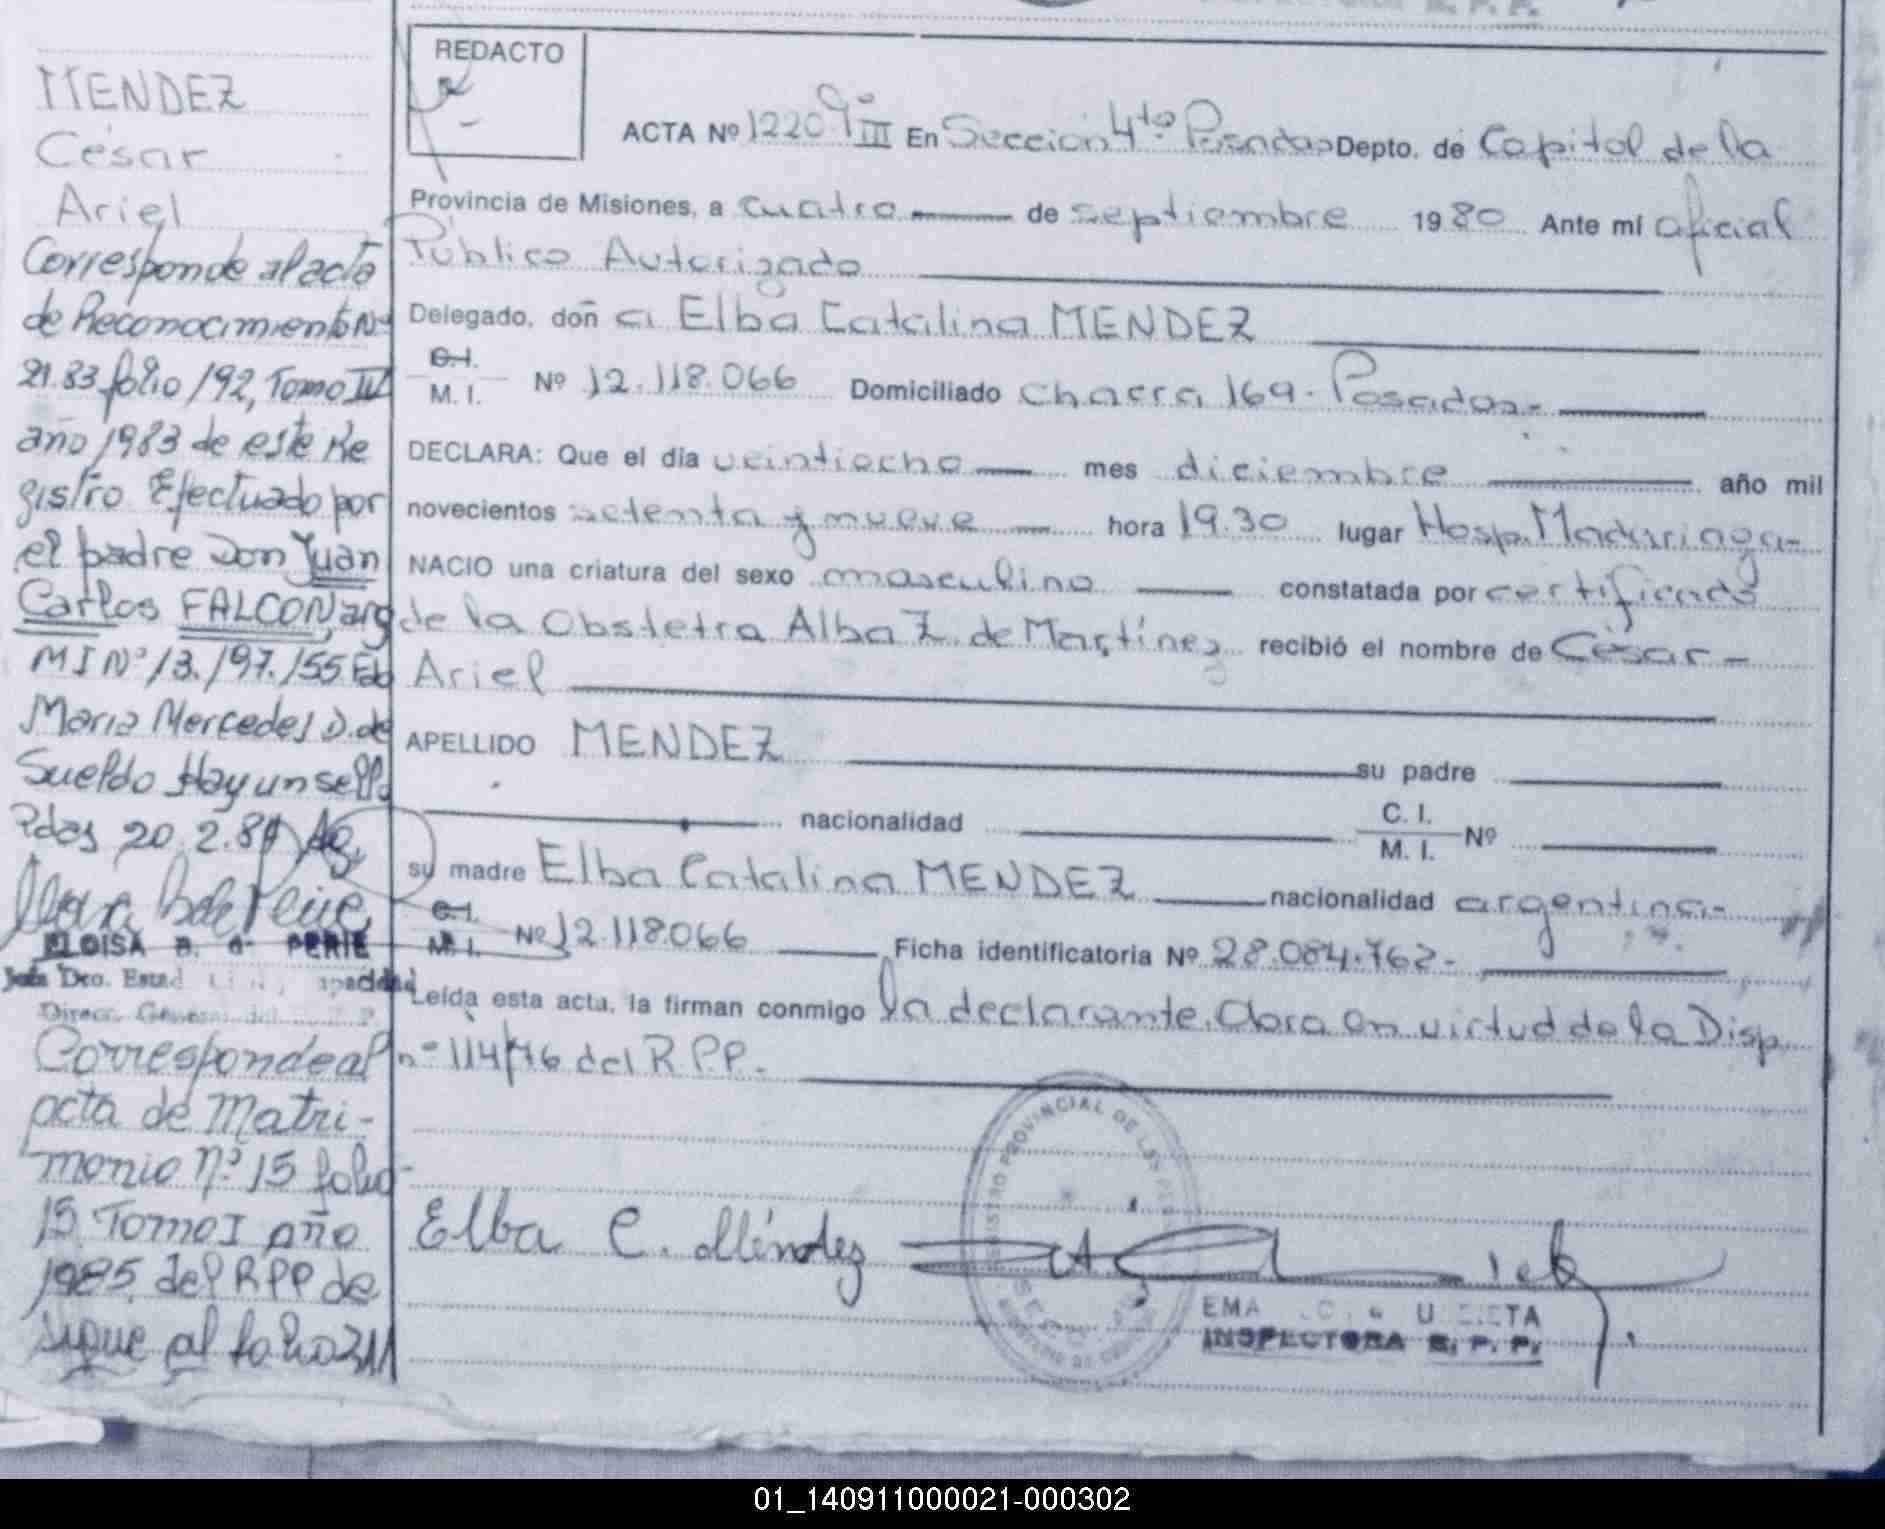 MENDEZ
César
Ariel
Corresponde al acta
de Reconocimiento Nº
2183 folio 192, Tomo IV
año 1983 de este Re
gistro Efectuado por
el padre Don Juan
Carlos FALCON, arg
MI Nº 13.197.155 Fdo
Maria Mercedes D. de
Sueldo Hay un sello
Pdas 20.2.84
ELOISA B. G. PERIE
Jefa Dco. Estad
Direcc. General del R. P. P.
Corresponde al
acta de Matri-
monio nº 15 folio
15 Tomo I año
1985 del RPP de
sigue al folio 311
REDACTO
ACTA Nº 1220 Tº III En Sección 4ta Posadas Depto. de Capital de la
Provincia de Misiones, a cuatro de septiembre 1980 Ante mí oficial
Público Autorizado
Delegado, doñ a Elba Catalina MENDEZ
C.I.
M. I. Nº 12.118.066 Domiciliado chacra 169 - Posadas -
DECLARA: Que el día veintiocho mes diciembre año mil
novecientos setenta y nueve hora 19.30 lugar Hosp. Madariaga -
NACIO una criatura del sexo masculino constatada por certificado
de la Obstetra Alba Z. de Martínez recibió el nombre de César -
Ariel
APELLIDO MENDEZ su padre
nacionalidad C. I.
M. I. Nº
su madre Elba Catalina MENDEZ nacionalidad argentina -
C.I.
M. I. Nº 12.118.066 Ficha identificatoria Nº 28.084.762 -
Leída esta acta, la firman conmigo la declarante. Obra en virtud de la Disp.
nº 114/76 del R.P.P. -
REGISTRO PROVINCIAL DE LAS PERS
Elba C. Méndez
INSPECTORA R. P. P.
01_140911000021-000302